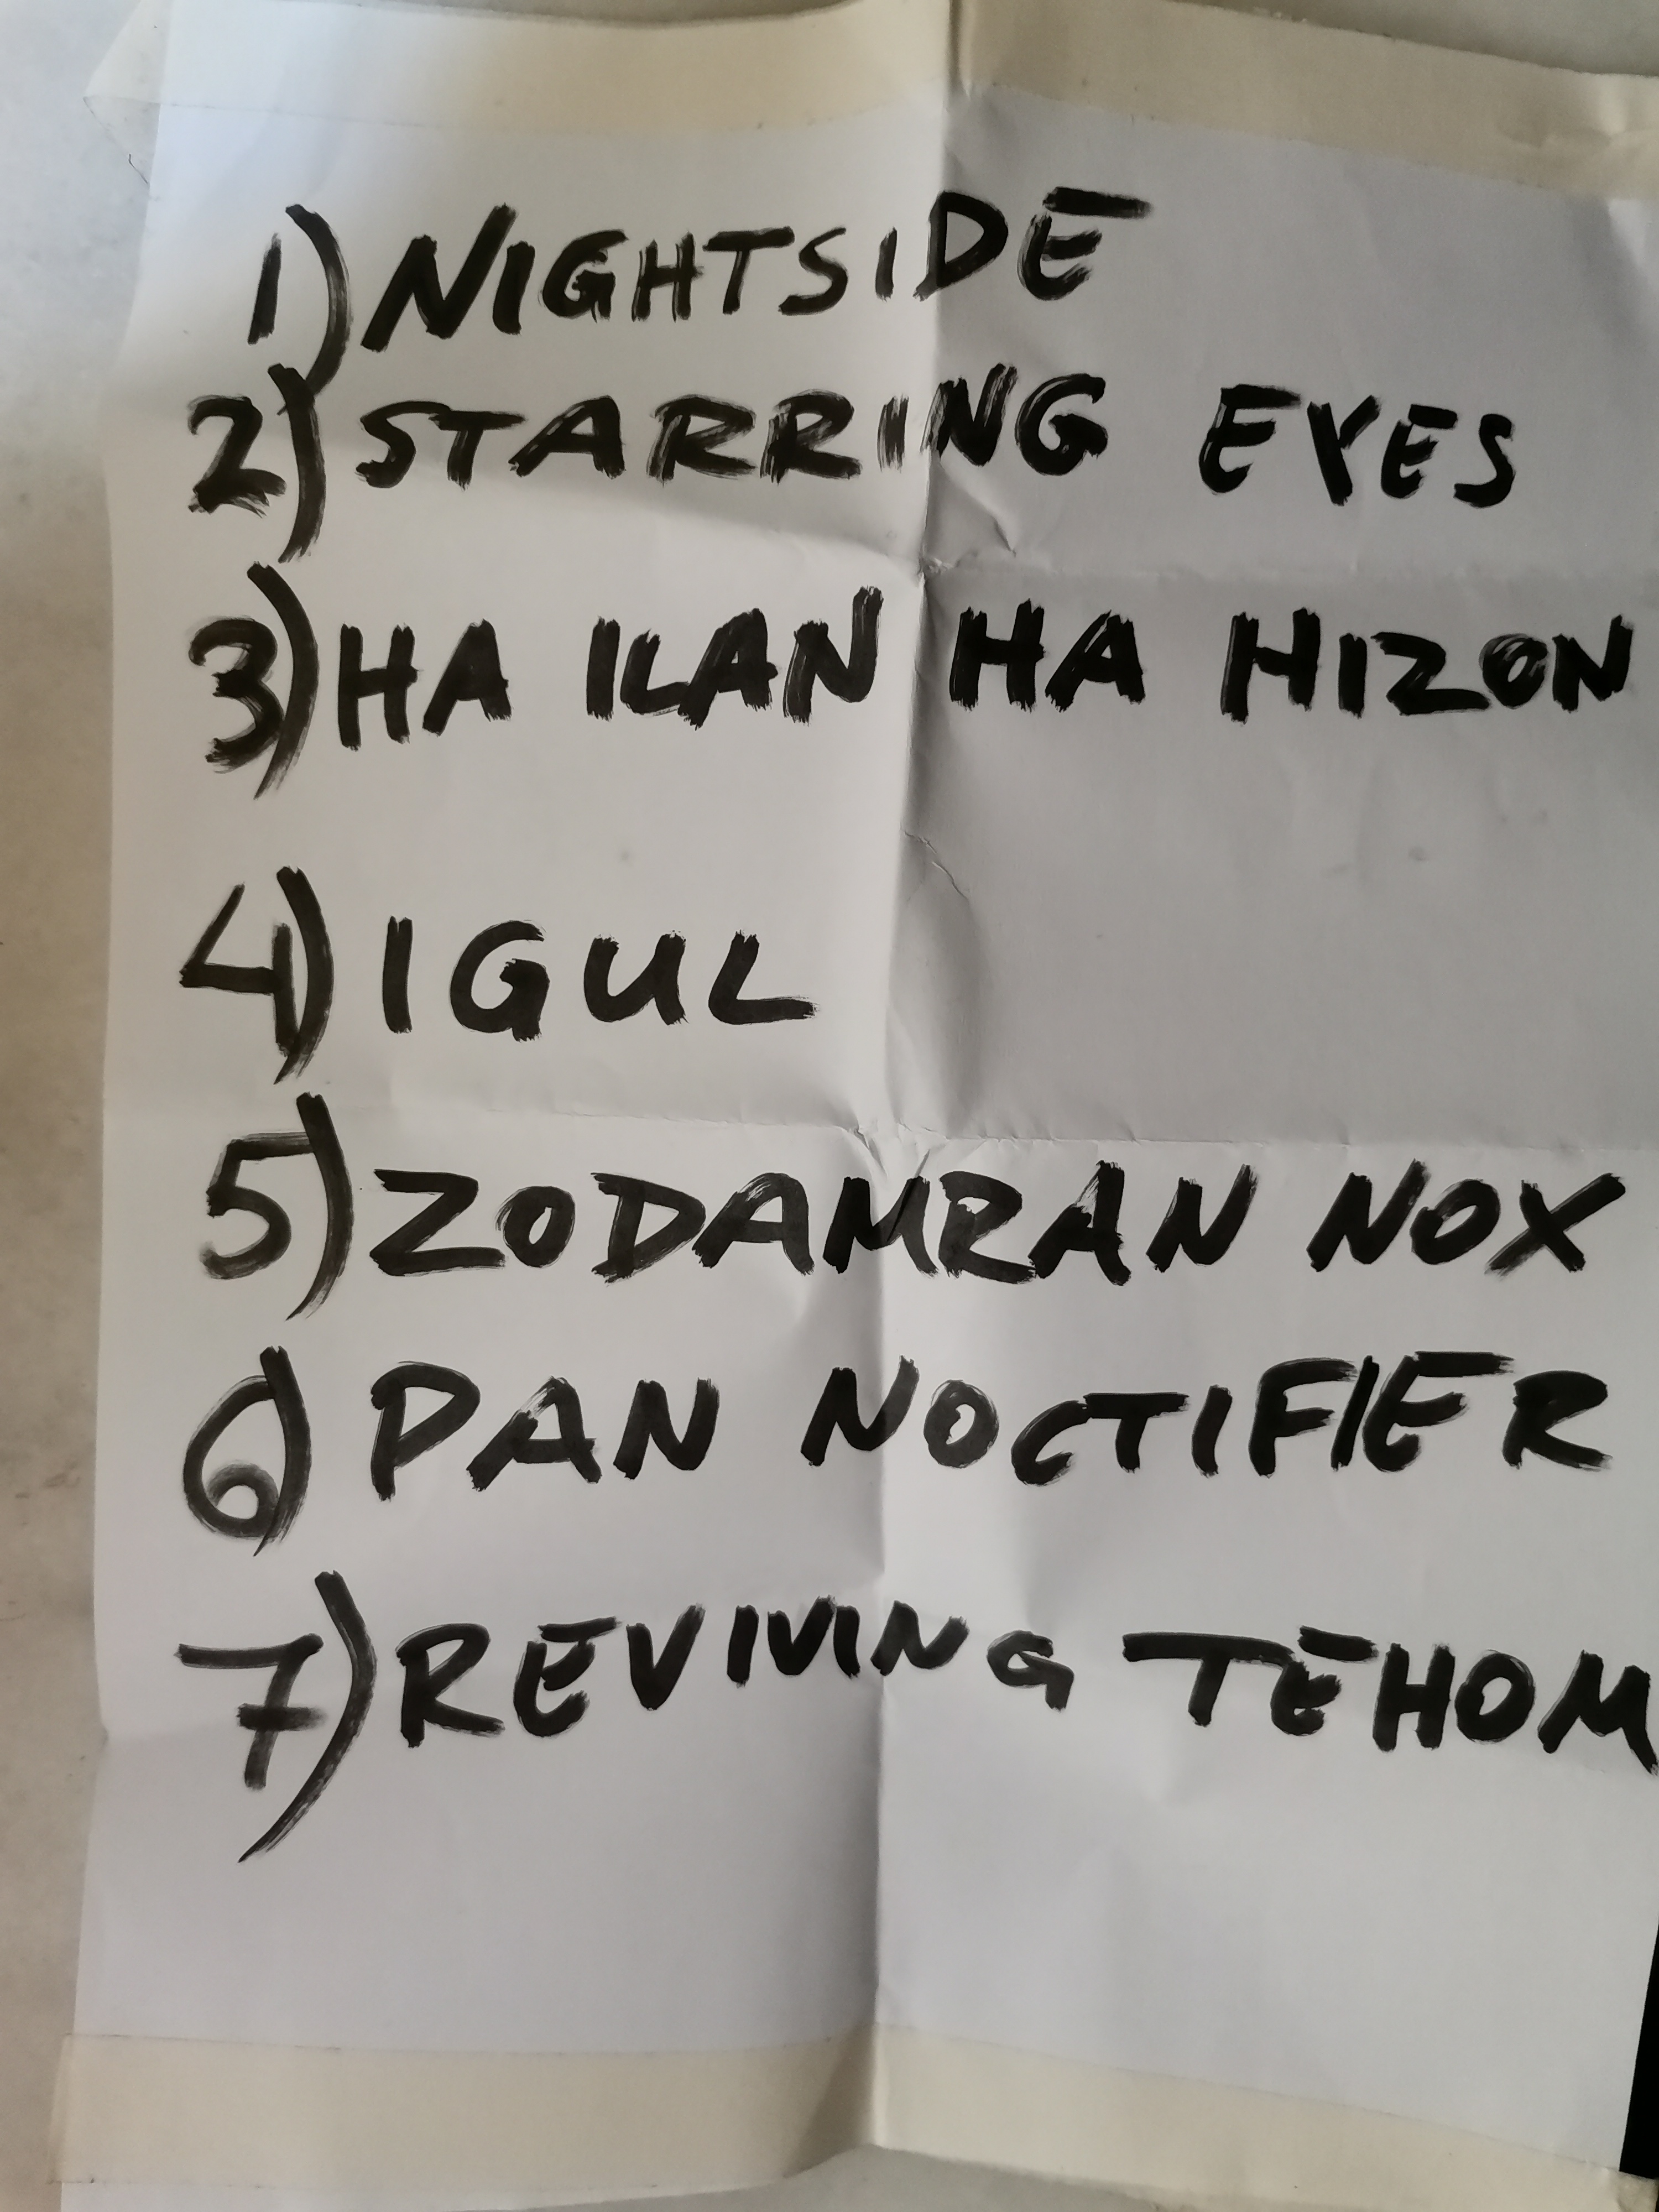 1) NIGHTSIDE
2) STARRING EYES
3) HA ILAN HA HIZON
4) IGUL
5) ZODAMRAN NOX
6) PAN NOCTIFIER
7) REVIVING TEHOM